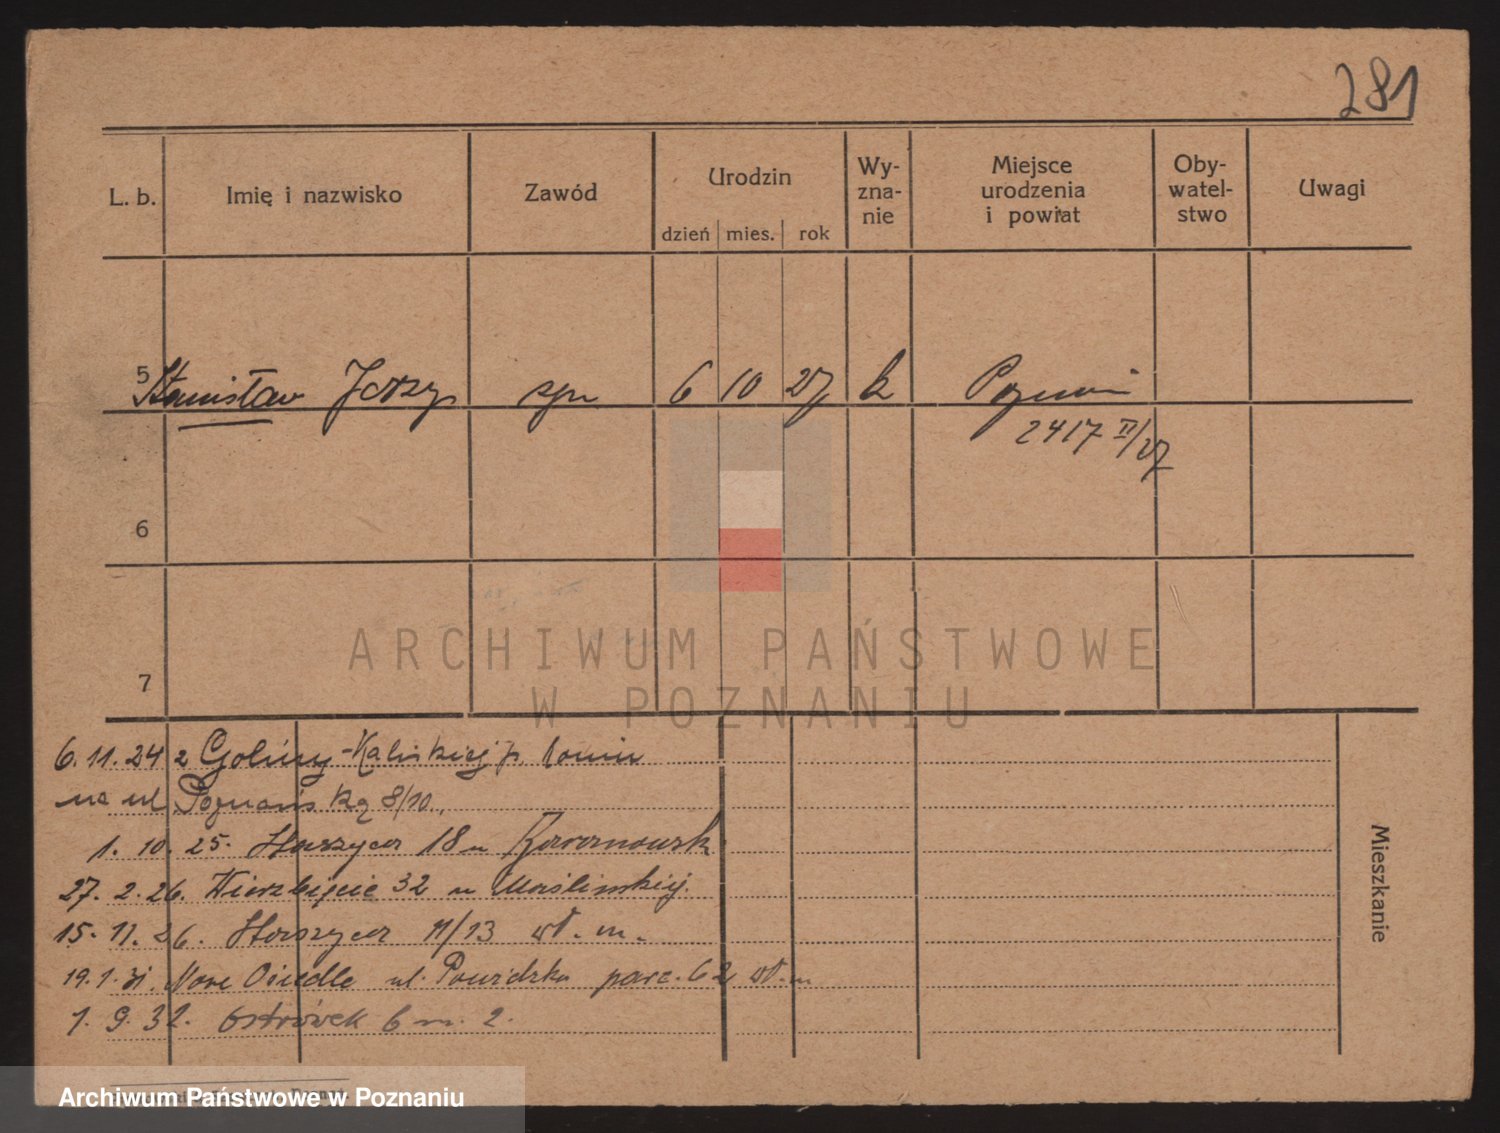 281
L. b. Imię i nazwisko Zawód Urodzin dzień mies. rok Wy-zna-nie Miejsce urodzenia i powiat Oby-watel-stwo Uwagi
5 Stanisław Jerzy syn 6 10 27 k Poznań
2417 II/27
6
7
ARCHIWUM PAŃSTWOWE
W POZNANIU
6. 11. 24 z Goliny-Kaliskiej p. Konin
na ul Poznańską 8/10.
1. 10. 25. Staszyca 18 u
27. 2. 26. Wierzbięcie 32 u Maślińskiej.
15. 11. 26. Staszyca 11/13 wł. m.
19. 1. 31. Nowe Osiedle ul. Powidzka parc. 62 wł. m
1. 9. 32. Ostrówek 6 m. 2.
Mieszkanie
Archiwum Państwowe w Poznaniu